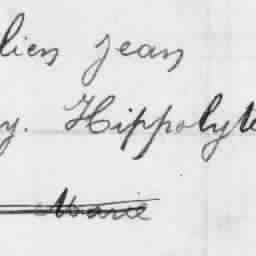 lien Jean
y. Hippolyte
Marie